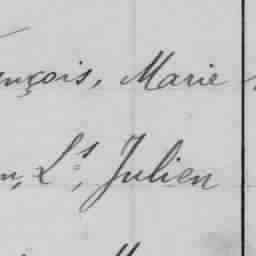 ançois, Marie
n, Ls, Julien